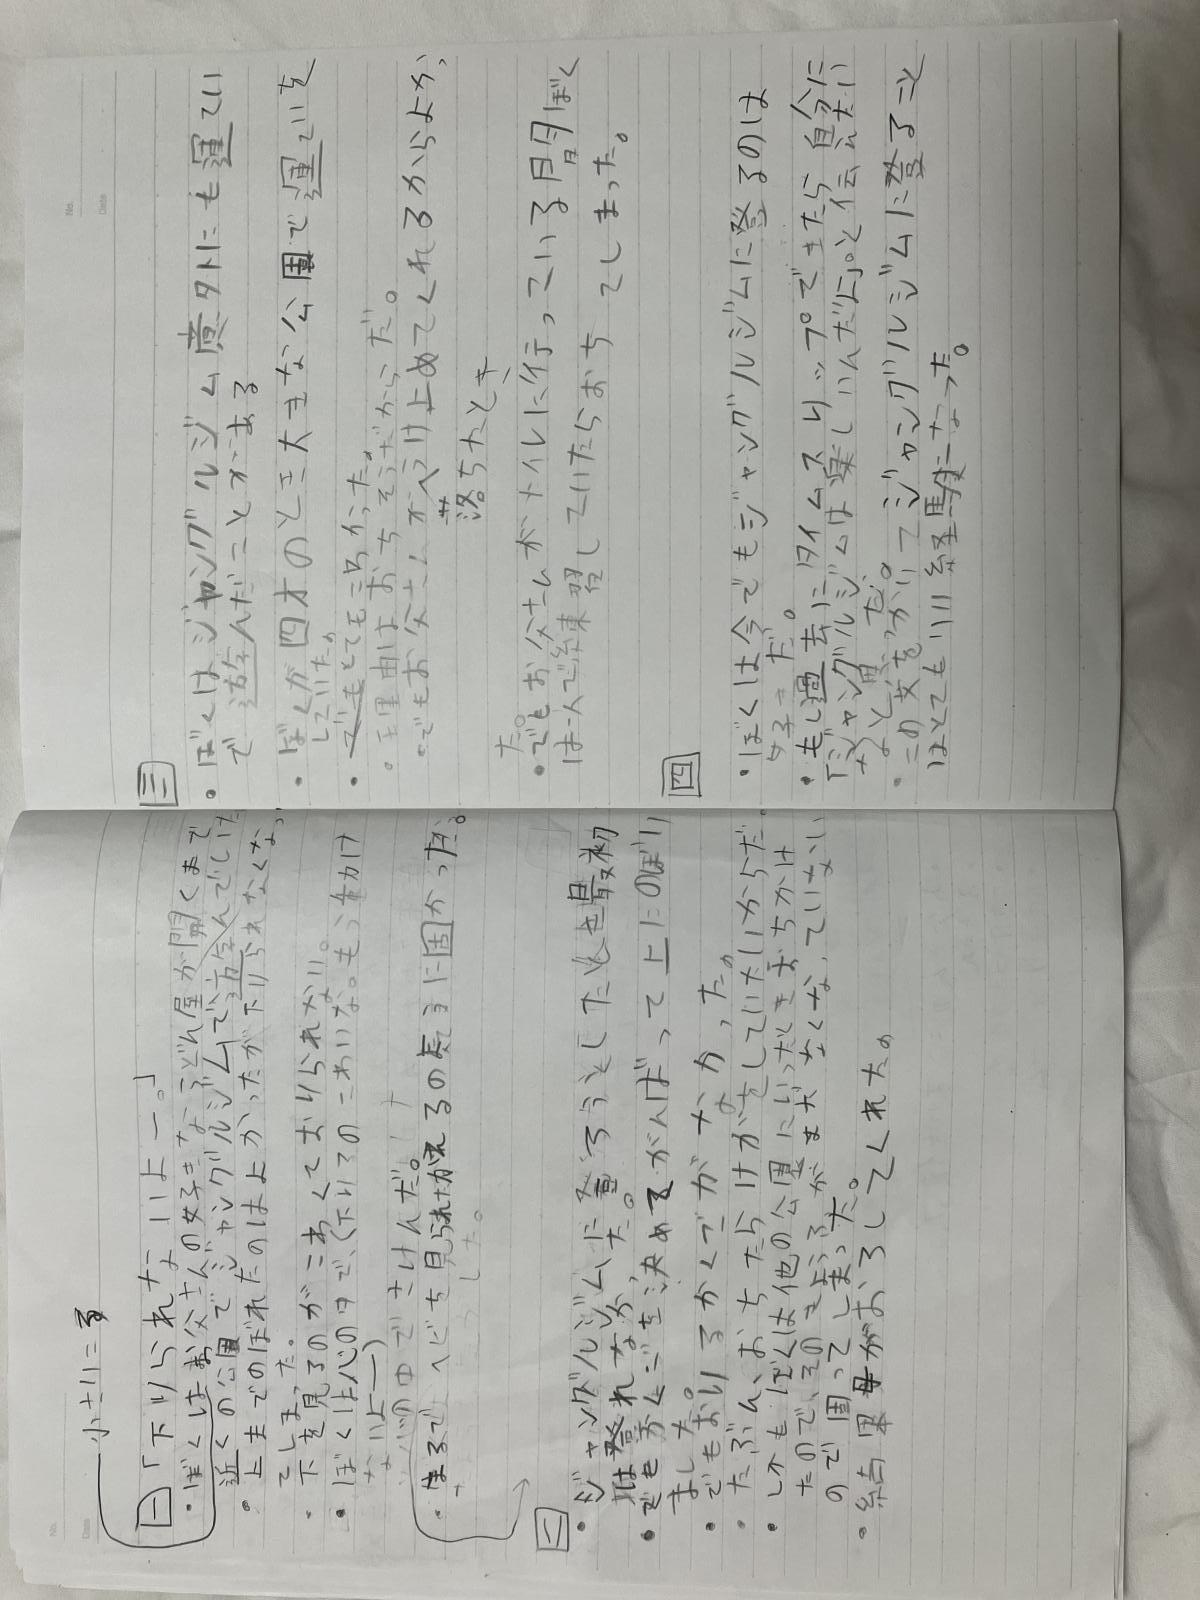 小さいころ
一
「下りられないよー。」
・ぼくはお父さんの好きなうどん屋が開くまで
近くの公園でジャングルジムで遊んでいた
・上までのぼれたのはよかったが下りられなくなっ
てしまった。
・下を見るのがこわくておりられない。
・ぼくは心の中で、(下りるのこわいな。もう動け
ないよー)
心の中でさけんだ。
・まるでヘビを見られたかえるの気に固かった。
二
・ジャングルジムに登ろうとしたとき最初
は登れなかった。
・でもかくごを決めてがんばって上にのぼり
ました。
・でもおりるかくごがなかった。
・たぶん、おちたらけがをしていたいからだ。
・しかもぼくは他の公園にいったときおちかけ
たので、そのきょうふがまだなくなっていない
ので困ってしまった。
・結果母がおろしてくれた。
No.
Date
三
・ぼくはジャングルジム意外にも運てい
で遊んだことがある
・ぼくが四才のとき大きな公園で運ていを
していた。
・でもとてもこわかった。
・理由はおちそうだからだ。
・でもお父さんがうけ止めてくれるからよかっ
た。
落ちたとき
・でもお父さんがトイレに行っている間ぼく
は一人で練習していたらおちてしまった。
四
・ぼくは今でもジャングルジムに登るのは
好きだ。
・もし過去にタイムスリップできたら自分に
「ジャングルジムは楽しいんだよ」と伝えたい
なと思った。
・この文をかいてジャングルジムに登ること
はとてもいい経験になった。
No.
Date